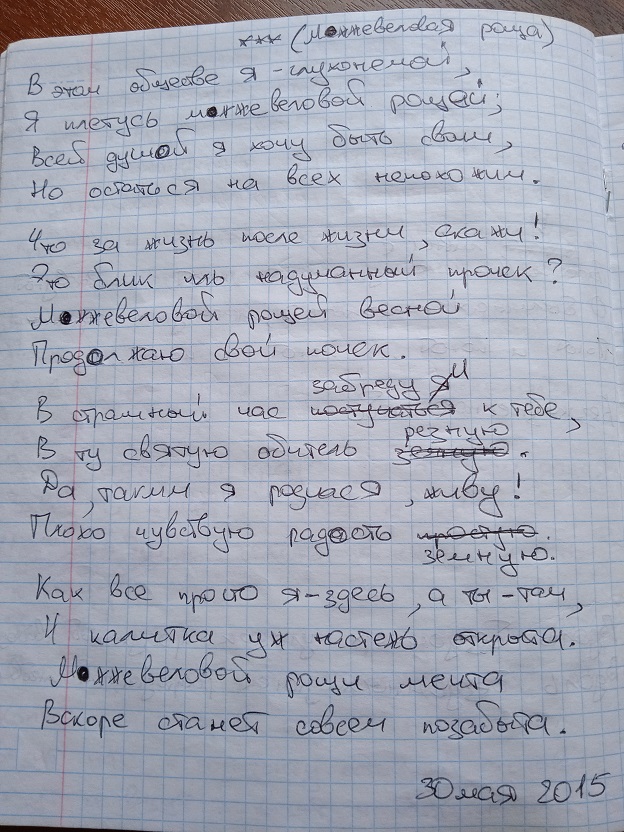 *** (Можжевеловая роща)
В этом обществе я - глухонемой,
Я плетусь можжевеловой рощей;
Всей душой я хочу быть своим,
Но остаться на всех непохожим.
Что за жизнь после жизни, скажи!
Это блик иль надуманный прочек?
Можжевеловой рощей весной
Продолжаю свой поиск.
забреду я и
В странный час постучаться к тебе,
резную
В ту святую обитель земную.
Да, таким я родился, живу!
Плохо чувствую радость простую.
земную.
Как все просто я - здесь, а ты - там,
И калитка уж настежь открыта.
Можжевеловой рощи мечта
Вскоре станет совсем позабыта.
30 мая 2015